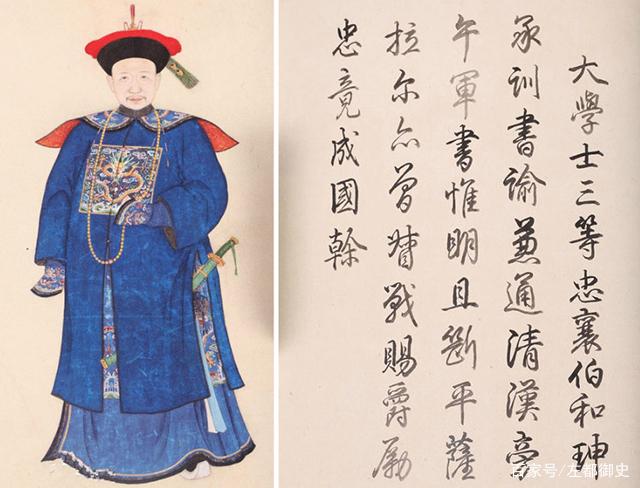 大學士三等忠襄伯和珅
承訓書諭兼通清漢旁
午軍書惟明且斷平薩
拉尔亦曾督戰賜爵勵
忠竟成國榦
百家号/左都御史